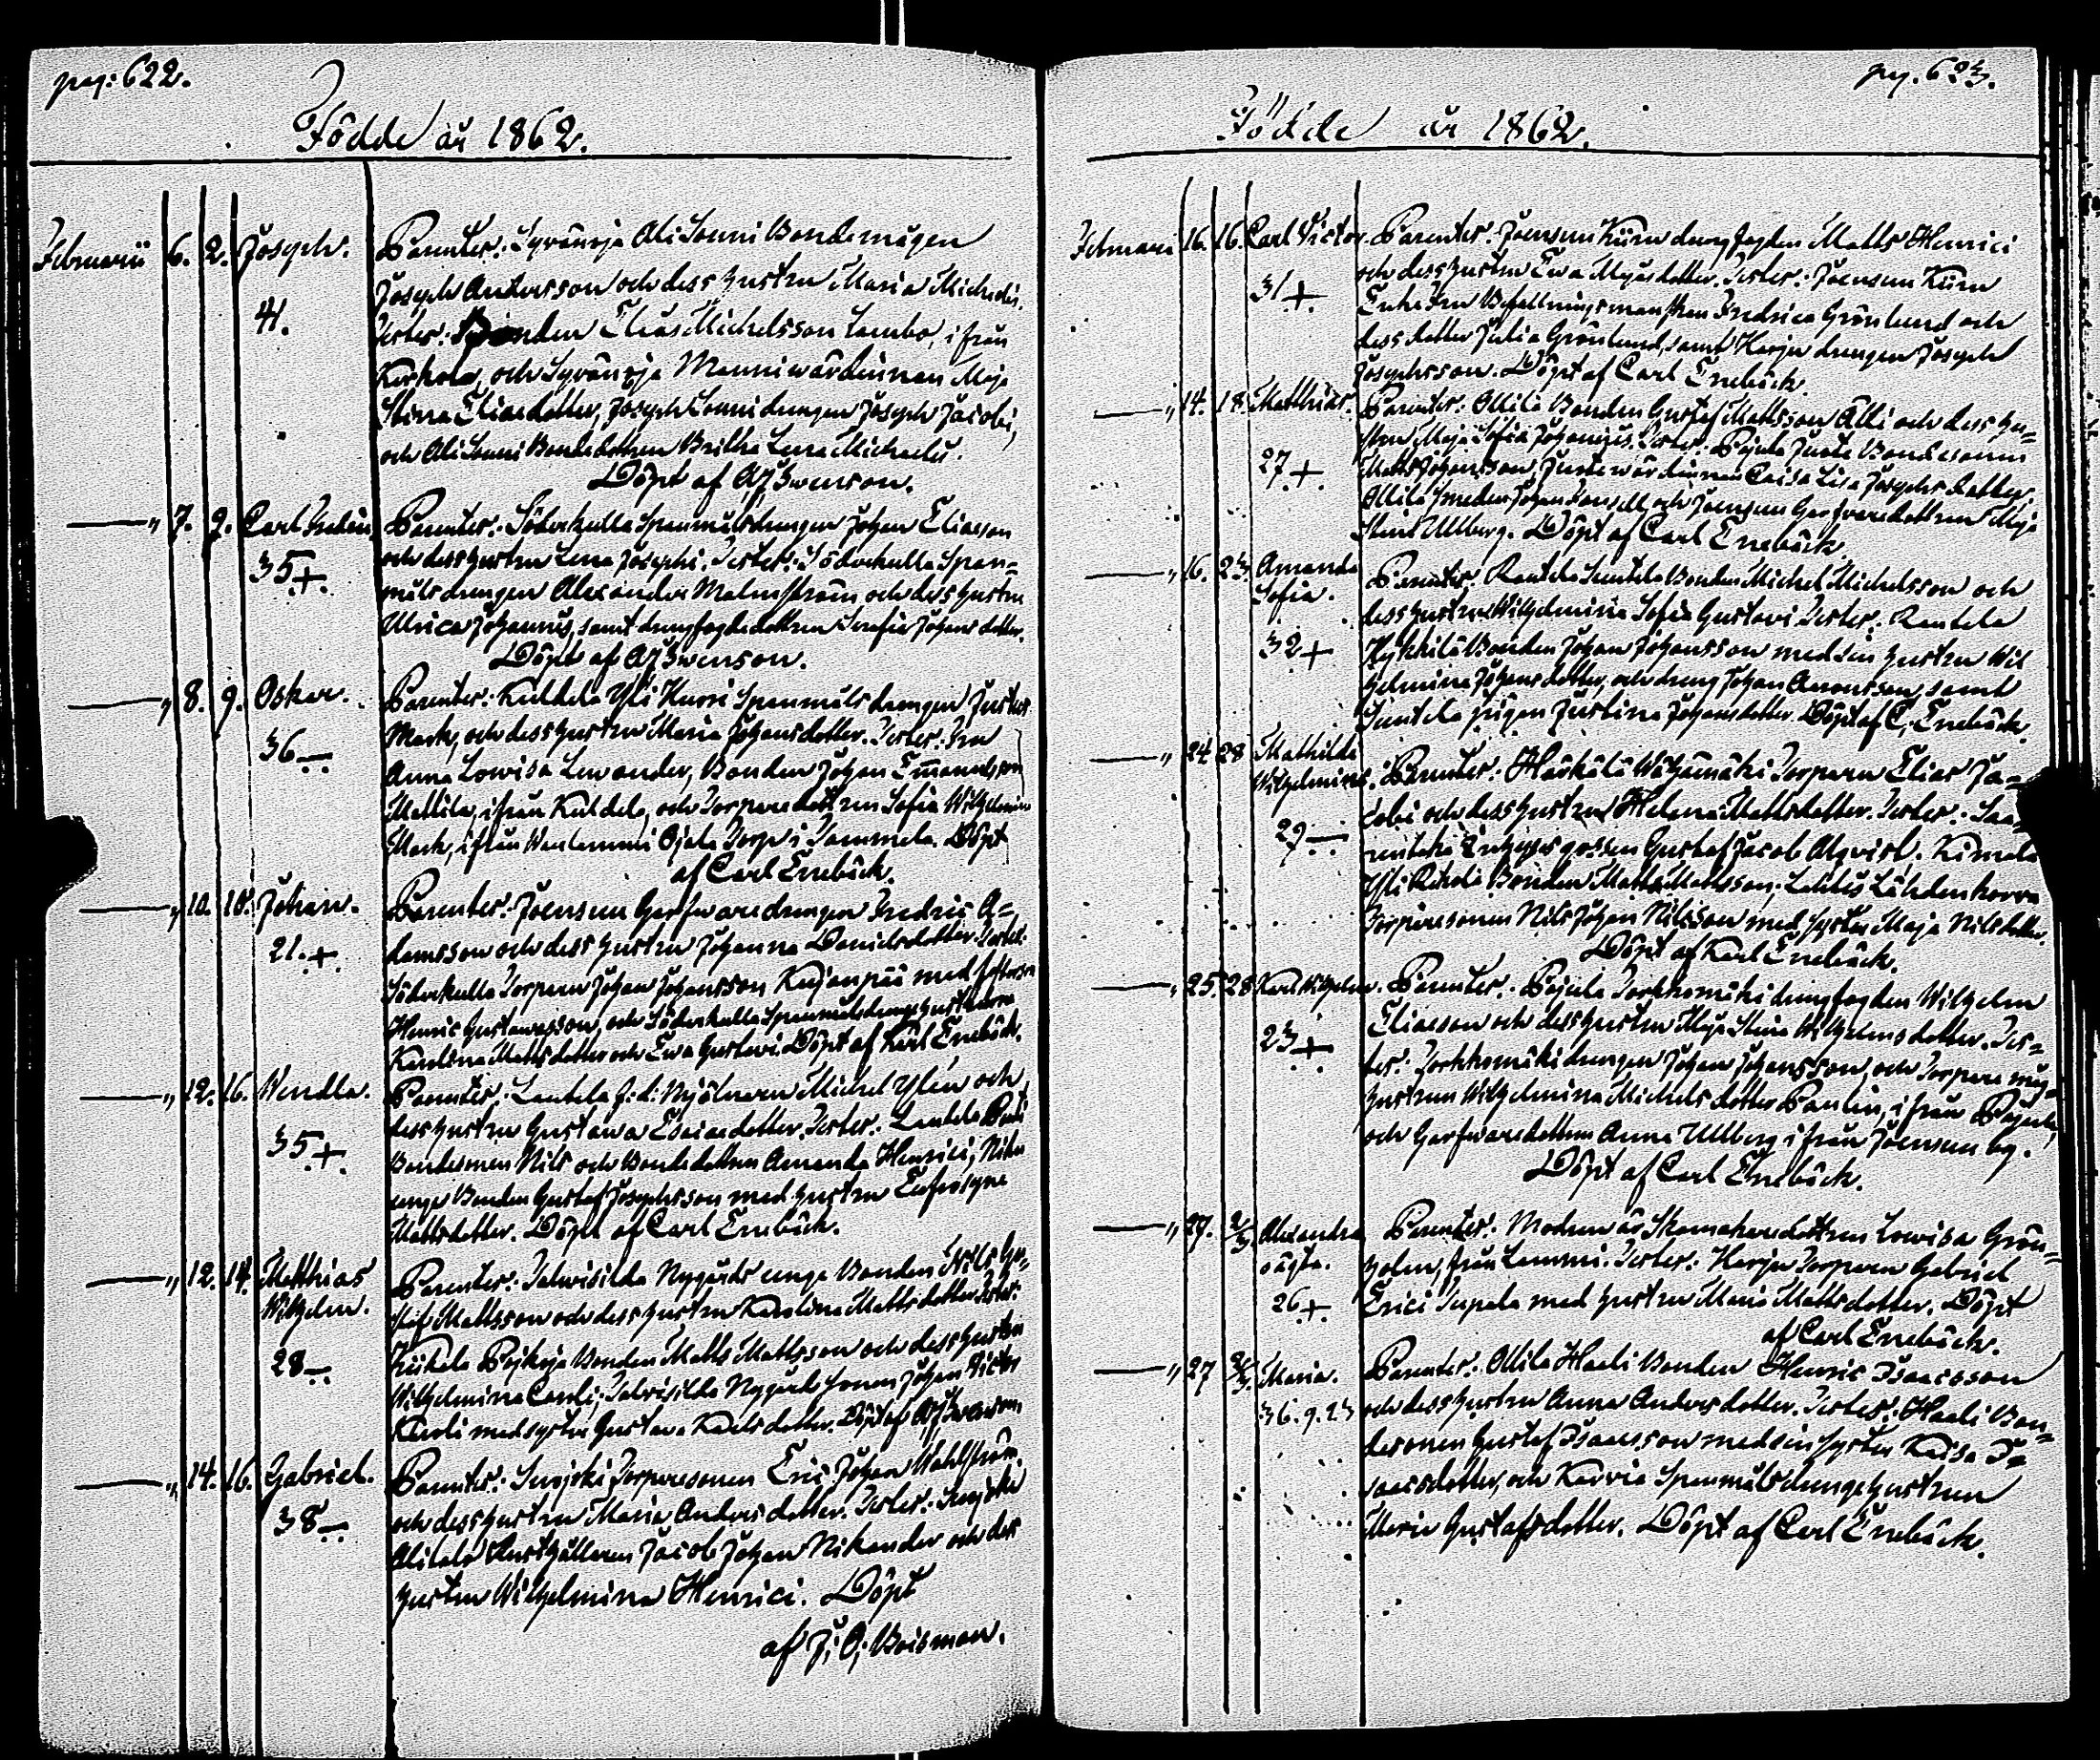 pag: 622.
Födde år 1862.
Februarii 6. 2. Joseph. Parenter: Syvänoja Ali Jouni Bondemågen
Joseph Andersson och dess hustru Maria Michelis.
41. Tester: Bonden Elias Michelsson Lambo, ifrån
Koskela, och Syvänoja Manni wärdinnan Maja
Stina Eliaedotter, Joseph Jouni drengen Joseph Jacobi,
och Ali Jouni Bondedottren Britha Lena Michaelis.
Döpt af Swenson.
" 7. 9. Carl Parenter: Söderkulla Spanmåls drengen Johan Eliasson
och dess hustru Lena Josephi. Tester: Söderkulla Span=
35 + måls drengen Alexander Malmström och dess hustru
Ulrica Johannis, samt drengfogdedottren Serafia Johans dotter.
Döpt af Swenson.
" 8. 9. Oskar. Parenter: Kuldela Yli Hurri Spanmåls drengen Justus
Mark, och dess hustru Maria Johansdotter. Tester: Fru
36 — Anna Lowisa Lewander, Bonden Johan Emanuelsson
Mattila, ifrån Kuldela, och Torparedottren Sofia Wilhelmina
Mark, ifrån Ojala Torp i Tammela. Döpt
af Carl Enebäck.
" 10. 10. Johan. Parenter: Joensuu Garfware drengen Fredric A=
damsson och dess hustru Johanna Danielsdotter. Tester:
21. + Söderkulla Torparen Johan Johansson Kujanpää med
Henric Gustawsson, och Söderkulla Spanmålsdrengshustrurna
Karolina Mattsdotter och Ewa Gustavi. Döpt af Karl Enebäck.
" 12. 16. Wendla. Parenter: Lautela f: d: Mjölnaren Michel Ylén och
dess hustru Gustawa Esaiaedotter. Tester: Lautela
35 + Bondesonen Nils och Bondedottren Amanda Henrici,
unge Bonden Gustaf Josephsson med hustru Eufrosyne
Mattsdotter. Döpt af Carl Enebäck.
" 12. 14. Matthias Parenter: Talwisilda Nygårds unge Bonden Nils Gu=
Wilhelm. Mattsson och dess hustru Karolina Mattsdotter. Tester:
28 — Kiikala Bonden Matts Mattsson och dess hustru
Wilhelmina Caroli; Talvisilda Nygårds sonen Johan Victor
Karli med syster Gustava Karlsdotter. Döpt af Swenson.
" 14. 16. Gabriel. Parenter: Suojoki Torparesonen Eric Johan Wahlström
och dess hustru Maria Andersdotter. Tester: Suojoki
38 — Alitalo Rusthållaren Jacob Johan Nikander och dess
hustru Wilhelmina Henrici. Döpt
af J. O. Boisman.
pag. 623.
Födde år 1862.
Februari 16. 16. Carl Victor. Parenter: Joensuu Kürn drengfogden Matts Henrici
och dess hustru Ewa Majas dotter. Tester: Joensuu Kürn
31 + Enke Fru Befallningsmanskan Fredrica Grönlund och
dess dotter Julia Grönlund, samt Harju drengen Joseph
Josephsson. Döpt af Carl Enebäck.
" 14. 18. Matthias. Parenter: Ollila Bonden Gustaf Mattsson Alli och dess hu=
stru Maja Sofia Johannis. Tester: Pajula Juote Bondesonen
27 + Matts Johansson, Juote wärdinnan Caisa Lisa Josephs dotter,
Ollila Smeden Johan och Joensuu Garfvaredottren Maja
Stina Ullberg. Döpt af Carl Enebäck.
" 16. 23. Amanda Parenter: Rautela Suutela Bonden Michel Michelsson och
Sofia. dess hustru Wilhelmina Sofia Gustavi. Tester: Rautela
32 + Hykkilä Bonden Johan Johansson med sin hustru Wil
helmina Johans dotter, och dreng Johan Aronsson, samt
Suutela pigan Justina Johansdotter. Döpt af C. Enebäck.
" 24. 28. Mathilda Parenter: Härkälä Wähämäki Torparen Elias Ja=
Wilhelmina. cobi och dess hustru Helena Mattsdotter. Tester: Saa=
29 — gossen Gustaf Jacob Alqvist. Kimala
Yli Rekola Bonden Matts Mattsson, Lahdenkorva
Torparesonen Nils Johan Nilsson med syster Maja Nilsdotter.
Döpt af Karl Enebäck.
" 25. 28. Karl Wilhelm. Parenter: Pajula Torkkomäki drengfogden Wilhelm
Eliasson och dess hustru Maja Stina Wilhelmsdotter. Tes=
23 + ter: Torkkomäki drengen Johan Johansson, och Torpare måg=
hustrun Wilhelmina Michelsdotter Paulin, ifrån Pajula,
och Garfwaredottren Anna Ullberg ifrån Joensuu by.
Döpt af Carl Enebäck.
" 27. 2/3. Alexandra Parenter: Modren är Skomakaredottren Lowisa Grön=
oägta. holm, från Lammi. Tester: Harju Torparen Gabriel
26 + Erici Supala med hustru Maria Mattsdotter. Döpt
af Carl Enebäck.
" 27 2/3. Maria. Parenter: Ollila Haali Bonden Henric Isaacsson
36. 9. 23 och dess hustru Anna Andersdotter. Tester: Haali Bon=
desonen Gustaf Isaacsson med sin syster Kaisa I=
saacsdotter, och Karvia Spanmåls drengshustrun
Maria Gustafsdotter. Döpt af Carl Enebäck.